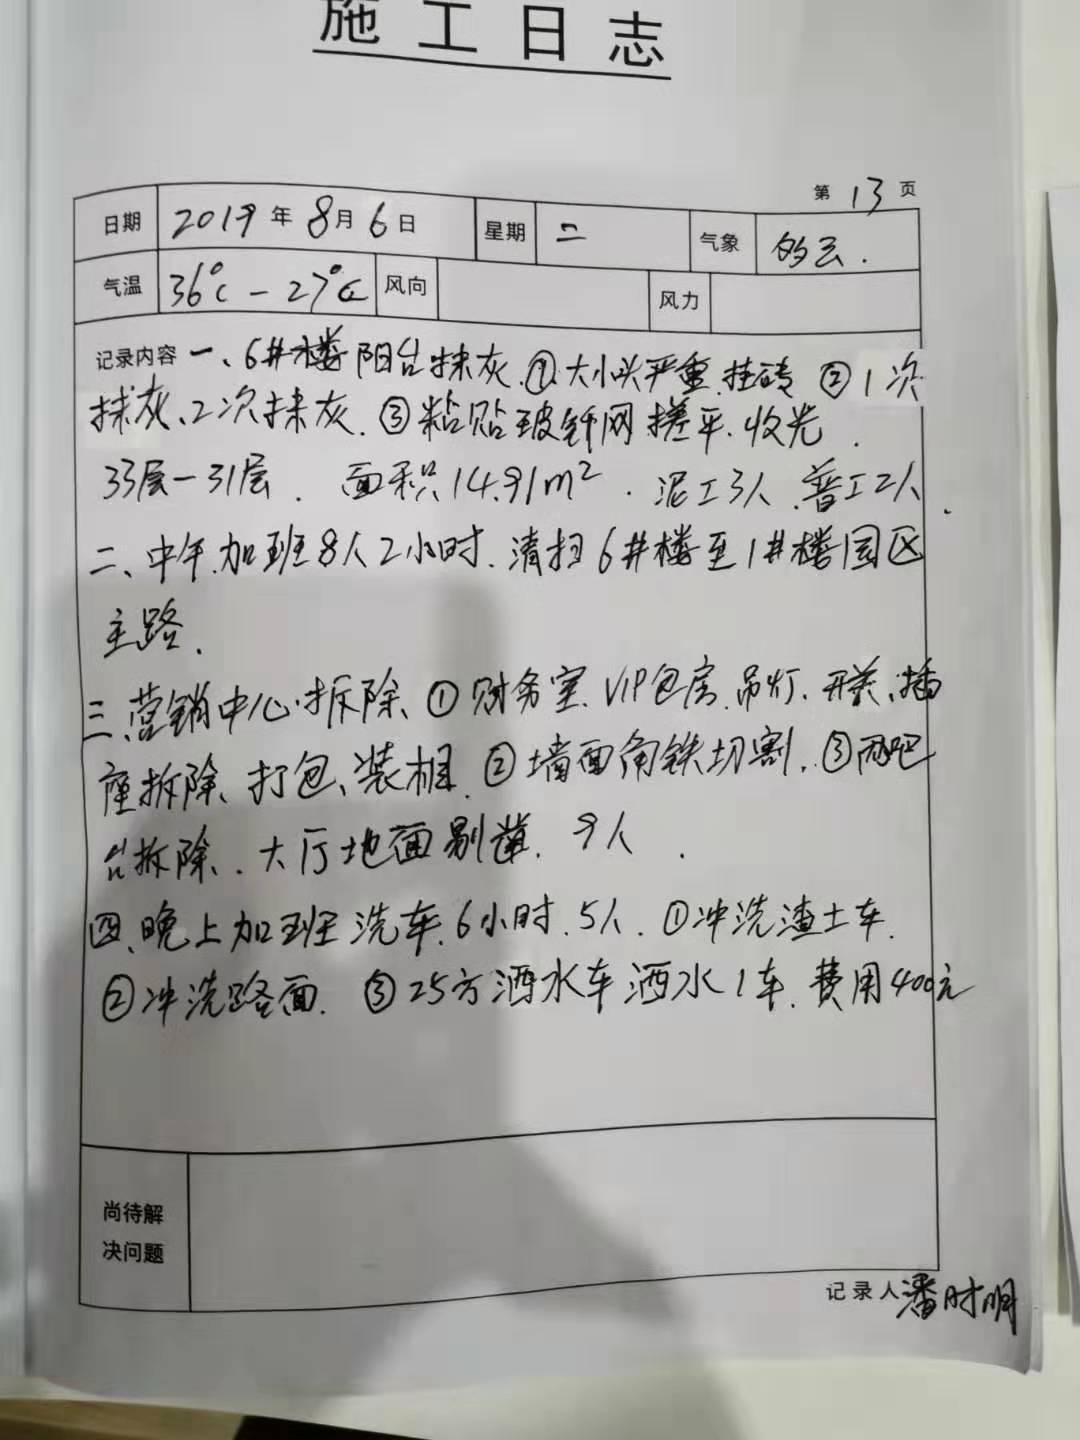 施工日志
第 13 页
日期 2019年8月6日 星期 二 气象 多云.
气温 36℃-27℃ 风向 风力
记录内容 一、6#楼阳台抹灰.①大小头严重.挂砖 ②1次
抹灰、2次抹灰.③粘贴玻纤网搓平.收光.
33层一31层. 面积14.91m². 泥工3人.普工2人.
二、中午.加班8人2小时.清扫6#楼至1#楼园区
主路.
三、营销中心拆除、①财务室.VIP包房.吊灯.开关、插
座拆除、打包、装相.②墙面角铁切割.③两吧
台拆除、.大厅地面剔凿.9人.
四、晚上加班洗车.6小时.5人.①冲洗渣土车.
②冲洗路面.③25方洒水车洒水1车.费用400元
尚待解
决问题
记录人 潘时明